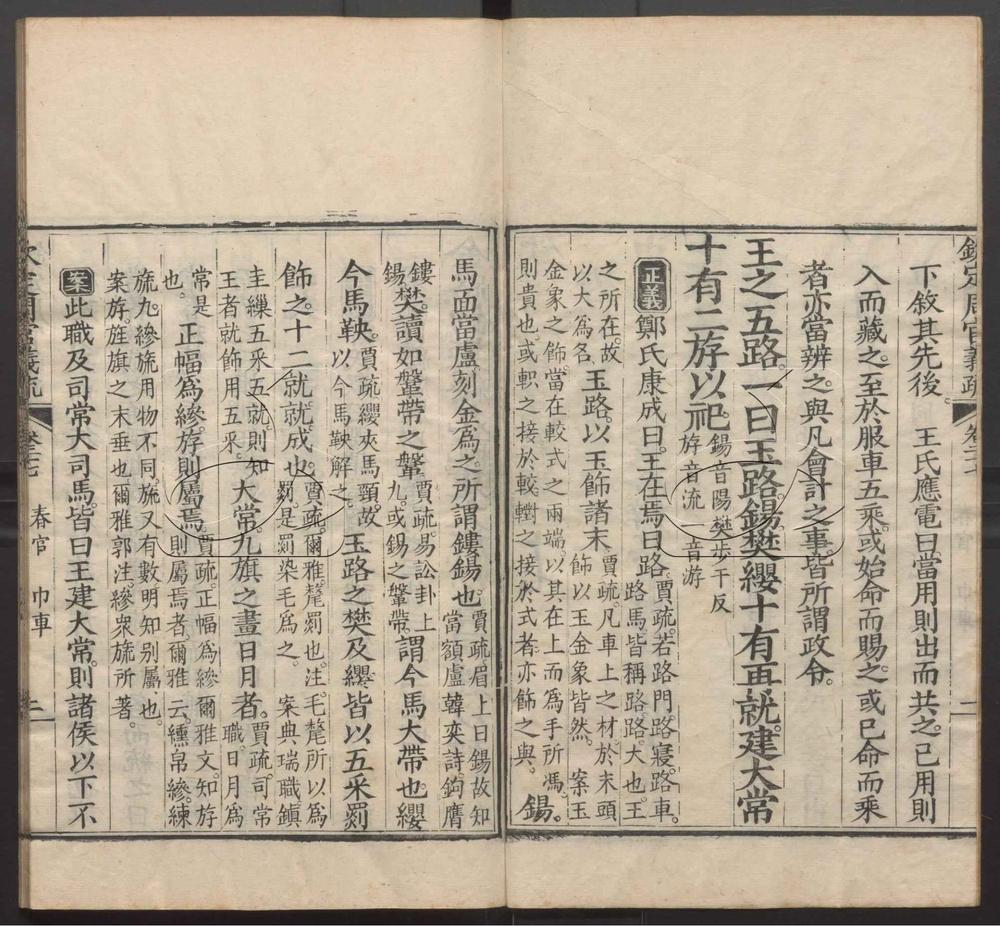 欽定周官義疏 卷二十七
下敘其先後。王氏應電曰當用則出而共之。已用則
入而藏之。至於服車五乘。或始命而賜之。或已命而乘
者亦當辨之。與凡會計之事。皆所謂政令。
王之五路。一曰玉路。鍚樊纓十有再就。建大常
十有二斿以祀。鍚音陽樊步干反
斿音流一音游
正義鄭氏康成曰。王在焉曰路。賈疏。若路門路寢路車。
路馬皆稱路路大也。王
之所在。故
以大為名。玉路。以玉飾諸末。賈疏。凡車上之材。於末頭
飾以玉金象皆然。 案玉
金象之飾。當在較式之兩端。以其在上而為手所馮。
則貴也。或軹之接於較。轛之接於式者。亦飾之與。鍚。
馬面當盧。刻金為之。所謂鏤鍚也。賈疏眉上曰鍚故知
當額盧韓奕詩。鉤膺
鏤鍚。樊讀如鞶帶之鞶。賈疏。易訟卦上
九。或錫之鞶帶。謂今馬大帶也。纓
今馬鞅。賈疏纓夾馬頸。故
以今馬鞅解之。玉路之樊及纓。皆以五采罽
飾之。十二就。就。成也。賈疏。爾雅。氂罽也。注。毛氂所以為
罽。是罽染毛為之。 案典瑞職。鎮
圭繅五采五就。則知
王者就飾用五采。大常。九旗之畫日月者。賈疏。司常
職。日月為
常是
也。正幅為縿。斿則屬焉。賈疏。正幅為縿爾雅文。知斿
則屬焉者。爾雅云。纁帛縿。練
旒九。縿旒用物不同。旒又有數。明知別屬也。
案斿旌旗之末垂也。爾雅郭注。縿衆旒所著。
案此職及司常大司馬。皆曰王建大常。則諸侯以下不
欽定周官義疏 卷二十七 春官 巾車 二